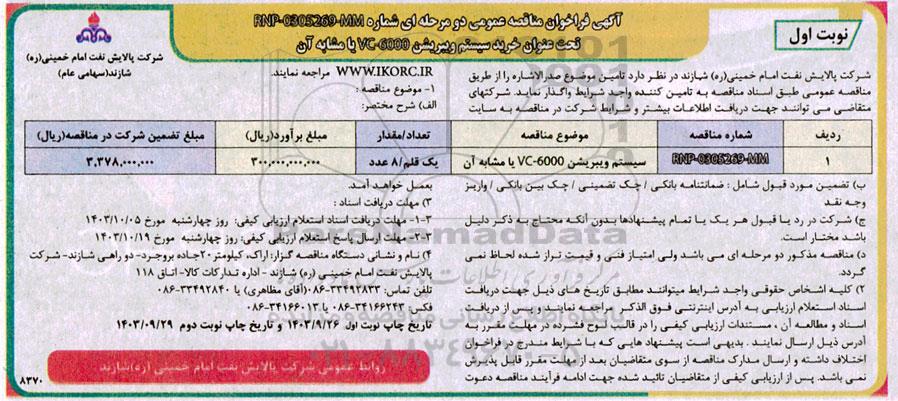 نوبت اول
آگهی فراخوان مناقصه عمومی دو مرحله ای شماره RNP-0305269-MM
تحت عنوان خرید سیستم ویبریشن VC-6000 یا مشابه آن
شرکت پالایش نفت امام خمینی(ره)
شازند(سهامی عام)
شرکت پالایش نفت امام خمینی(ره) شازند در نظر دارد تامین موضوع صدرالاشاره را از طریق
مناقصه عمومی طبق اسناد مناقصه به تامین کننده واجد شرایط واگذار نماید. شرکتهای
متقاضی می توانند جهت دریافت اطلاعات بیشتر و شرایط شرکت در مناقصه به سایت
WWW.IKORC.IR مراجعه نمایند.
۱- موضوع مناقصه :
الف) شرح مختصر:
ردیف شماره مناقصه موضوع مناقصه تعداد/مقدار مبلغ برآورد(ریال) مبلغ تضمین شرکت در مناقصه(ریال)
۱ RNP-0305269-MM سیستم ویبریشن VC-6000 یا مشابه آن یک قلم/۸ عدد ۳۰۰,۰۰۰,۰۰۰,۰۰۰ ۳,۳۷۸,۰۰۰,۰۰۰
ب) تضمین مورد قبول شامل : ضمانتنامه بانکی / چک تضمینی / چک بین بانکی / واریز
وجه نقد
ج) شرکت در رد یا قبول هر یک یا تمام پیشنهادها بدون آنکه محتاج به ذکر دلیل
باشد مختار است.
د) مناقصه مذکور دو مرحله ای می باشد ولی امتیاز فنی و قیمت تراز شده لحاظ نمی
گردد.
۲) کلیه اشخاص حقوقی واجد شرایط میتوانند مطابق تاریخ های ذیل جهت دریافت
اسناد استعلام ارزیابی به آدرس اینترنتی فوق الذکر مراجعه نمایند و پس از دریافت
اسناد و مطالعه آن ، مستندات ارزیابی کیفی را در قالب لوح فشرده در مهلت مقرر به
آدرس ذیل ارسال نمایند. بدیهی است پیشنهاد هایی که با شرایط مندرج در فراخوان
اختلاف داشته و ارسال مدارک مناقصه از سوی متقاضیان بعد از مهلت مقرر قابل پذیرش
نمی باشد. پس از ارزیابی کیفی از متقاضیان تائید شده جهت ادامه فرآیند مناقصه دعوت
بعمل خواهد آمد.
۳) مهلت دریافت اسناد :
۳-۱- مهلت دریافت اسناد استعلام ارزیابی کیفی: روز چهارشنبه مورخ ۱۴۰۳/۱۰/۰۵
۳-۲- مهلت ارسال پاسخ استعلام ارزیابی کیفی: روز چهارشنبه مورخ ۱۴۰۳/۱۰/۱۹
۴) نام و نشانی دستگاه مناقصه گزار: اراک، کیلومتر ۲۰جاده بروجرد- دو راهی شازند- شرکت
پالایش نفت امام خمینی (ره) شازند - اداره تدارکات کالا- اتاق ۱۱۸
تلفن تماس: ۳۳۴۹۲۸۳۳-۰۸۶(آقای مظاهری) یا ۳۳۴۹۲۸۴۰-۰۸۶
فکس: ۳۴۱۶۶۲۴۳-۰۸۶ یا ۳۴۱۶۶۰۱۳-۰۸۶
تاریخ چاپ نوبت اول ۱۴۰۳/۹/۲۶ و تاریخ چاپ نوبت دوم ۱۴۰۳/۰۹/۲۹
روابط عمومی شرکت پالایش نفت امام خمینی (ره)شازند
۸۳۷۰
ParsNamadData